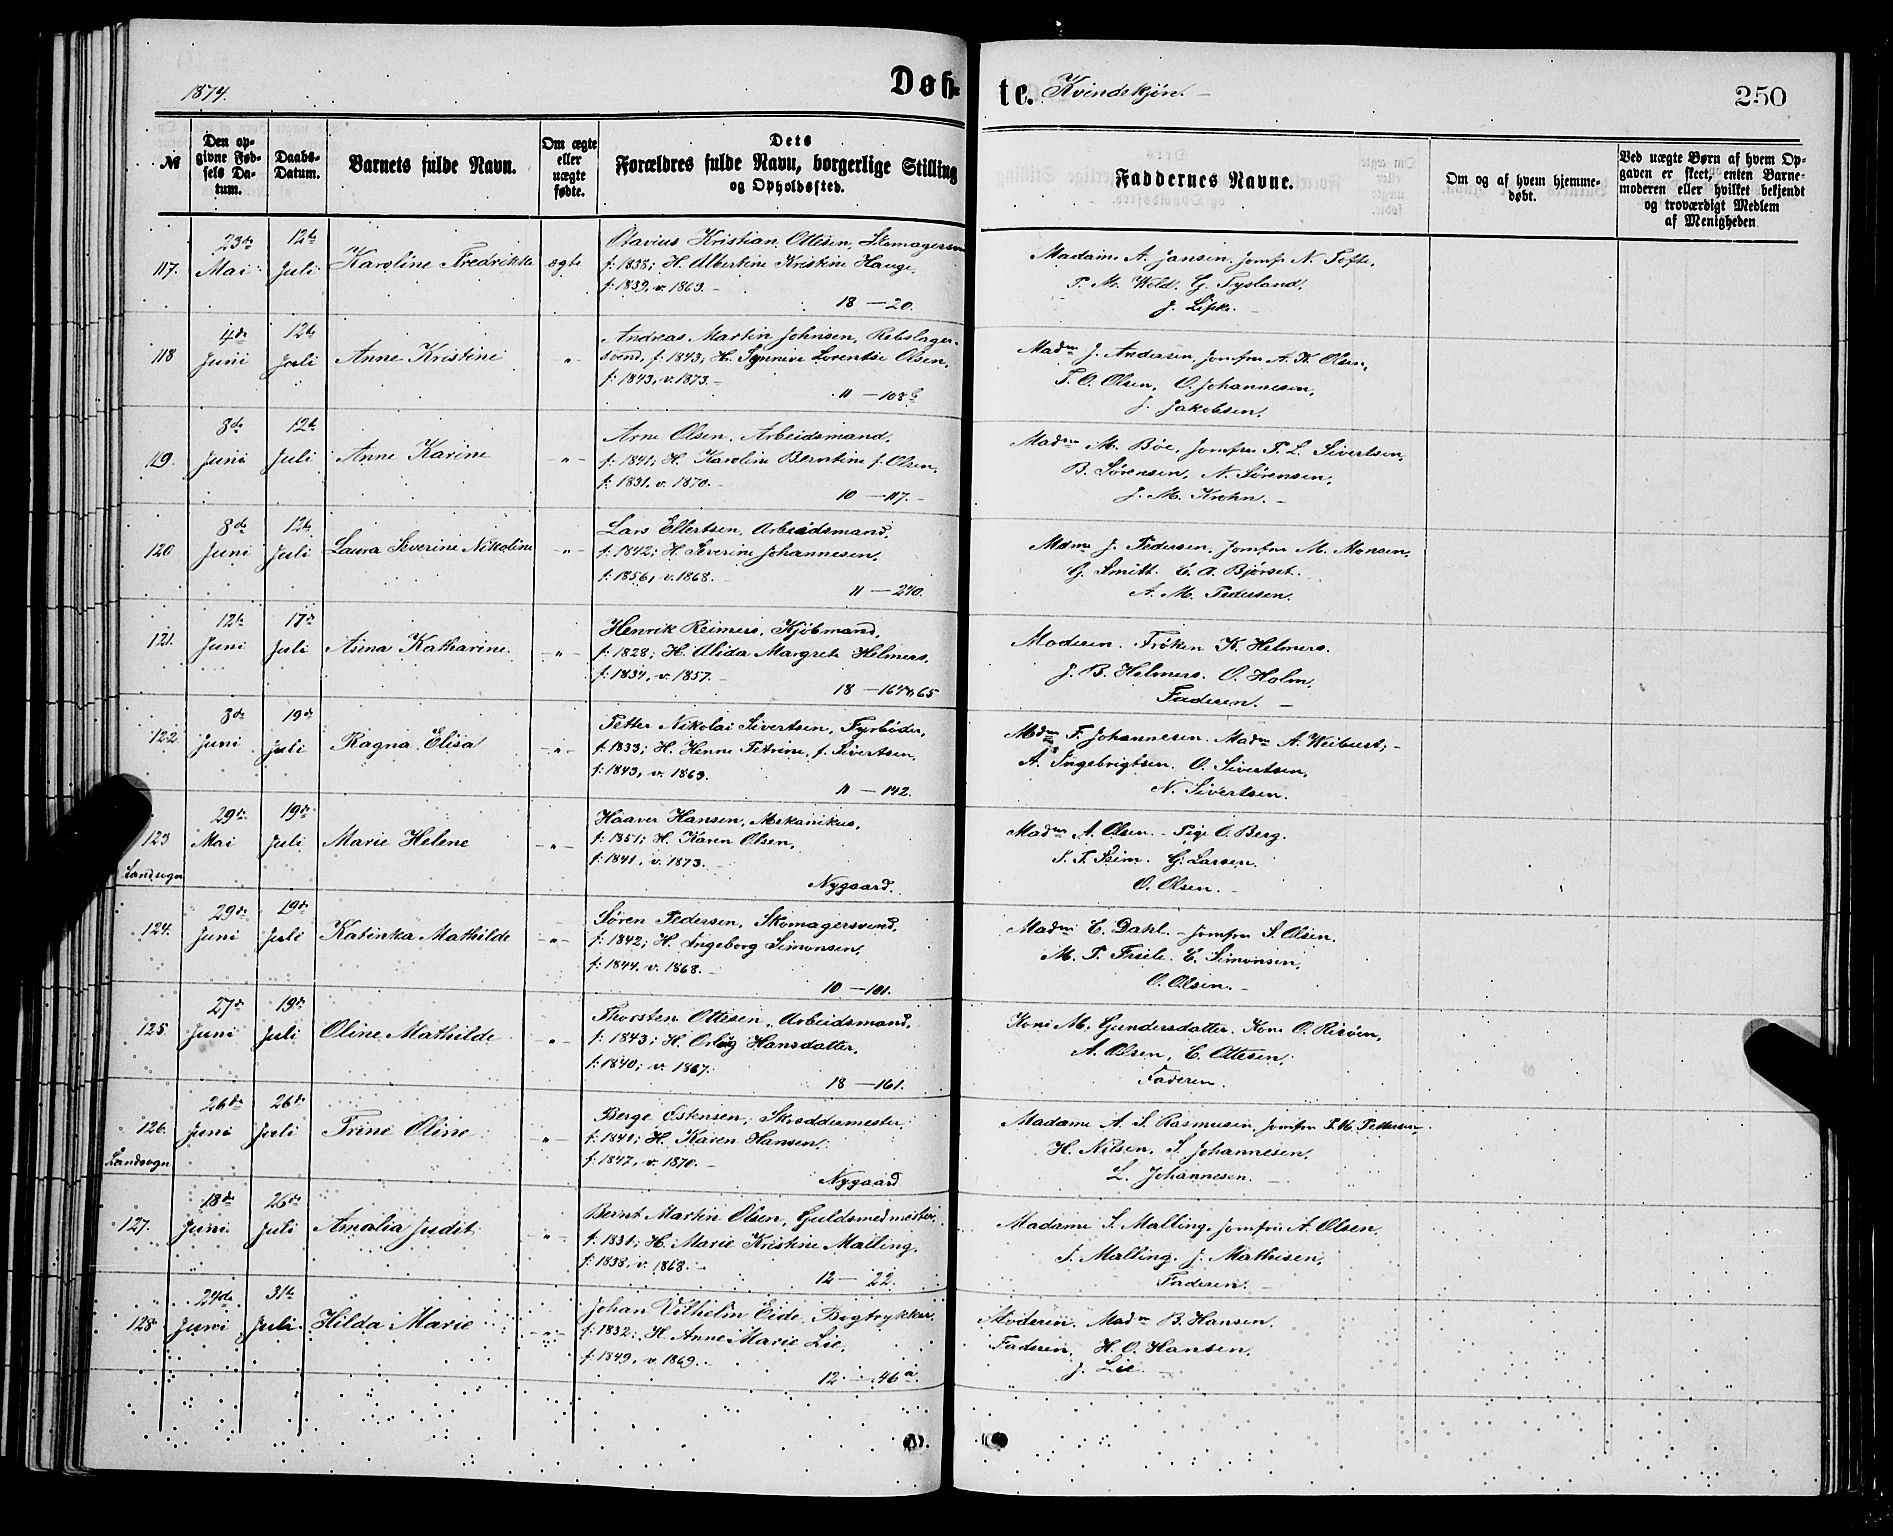 1874.
Døb-
te. Kvindekjøn.
250
№
Den op-
givne Fød-
sels Da-
tum.
Daabs-
Datum.
Barnets fulde Navn.
Om ægte
eller
uægte
fødte.
Dets
Forældres fulde Navn, borgerlige Stilling
og Opholdssted.
Faddernes Navne.
Om og af hvem hjemme-
døbt.
Ved uægte Børn af hvem Op-
gaven er skeet, enten Barne-
moderen eller hvilket bekjendt
og troværdigt Medlem
af Menigheden
117.
23de
Mai
12te
Juli
Karoline Fredrikke
ægte
Otavius Kristian Ottesen, Skomagersvend
f: 1838; H. Albertine Kristine Hauge,
f: 1839, v. 1863.
18 — 20.
Madame A. Jansen. Jomfr N. Tofte.
P. M. Wold. G. Tysland.
J. Lipke.
118
4de
Juni
12te
Juli
Anne Kristine
"
Andreas Martin Johnsen, Rebslager-
svend, f: 1843; H. Synneve Lorentse Olsen,
f: 1843, v. 1873.
11 — 108b
Madm J. Andersen, Jomfru A. K. Olsen,
T. O. Olsen, O. Johannesen,
J. Jakobsen.
119.
3de
Juni
12te
Juli
Anne Karine
"
Arne Olsen, Arbeidsmand,
f: 1841; H. Karoline Berntine f. Olsen,
f: 1831, v. 1870.
10 — 117.
Madm M. Bøe, Jomfru P. L. Sivertsen,
B. Sørensen, N. Sørensen,
J. M. Krohn.
120
3de
Juni
12te
Juli
Laura Severine Nikoline
"
Lars Ellertsen, Arbeidsmand,
f: 1842; H. Severine Johannesen,
f: 1856, v. 1868.
11 — 240.
Madm J. Pedersen, Jomfru M. Monsen,
G. Smitt. C. A. Bjørset.
A. M. Pedersen.
121.
12te
Juni
17de
Juli
Anna Katharine
"
Henrik Reimers, Kjøbmand,
f: 1828; H. Alida Margrete Helmers,
f: 1834, v. 1857.
18 — 164,65
Moderen. Frøken K. Helmers.
J. B. Helmers. O. Holm,
Faderen.
122
3de
Juni
19de
Juli
Ragna Elisa
"
Petter Nikolai Sivertsen, Fyrbøder,
f: 1833; H. Henne Petrine, f. Sivertsen,
f: 1843, v. 1863.
11 — 142.
Madm F. Johannesen. Madm A. Weibust;
A. Ingebrigtsen. O. Sivertsen,
N. Sivertsen.
123
Landsogn
29de
Mai
19de
Juli
Marie Helene
"
Haaver Hansen, Mekanikus,
f: 1851; H. Karen Olsen,
f: 1841, v. 1873.
Nygaard.
Madm A. Olsen. Pige O. Berg.
G. Larsen.
O. Olsen.
124.
29de
Juni
19de
Juli
Katinka Mathilde
"
Søren Pedersen, Skomagersvend,
f: 1842; H. Ingeborg Simonsen,
f: 1844, v. 1868.
10 — 101.
Madm C. Dahl. Jomfru S. Olsen.
M. P. C. Simonsen,
O. Olsen.
125.
27de
Juni
19de
Juli
Oline Mathilde
"
Thorsten Ottesen, Arbeidsmand,
f: 1843; H. Hansdatter,
f: 1840; v. 1867.
18 — 161.
Kone M. Gundersdatter. Kone O. Risøen,
A. Olsen, C. Ottesen,
Faderen.
126.
Landsogn
26de
Juni
26de
Juli
Trine Oline
"
Berge Østensen, Skræddermester,
f: 1841; H. Karen Hansen,
f: 1847, v. 1870.
Nygaard
Madame A. S. Rasmusen, Jomfru P. K. Pettersen,
H. Nilsen, S. Johannesen,
L. Johannesen.
127.
18de
Juni
26de
Juli
Amalia Judit
"
Bernt Martin Olsen, Guldsmedmester,
f: 1831; H. Marie Kristine Malling,
f: 1838, v. 1868.
12 — 22.
Madame S. Malling, Jomfru A. Olsen,
S. Malling. J. Mathisen,
Faderen.
128
24de
Juni
31te
Juli
Hilda Marie
"
Johan Vilhelm Eide, Bogtrykker,
f: 1832; H. Anne Marie Lie,
f: 1849, v. 1869.
12 — 46a.
Moderen. Madm B. Hansen,
Faderen. H. O. Hansen,
J. Lie.